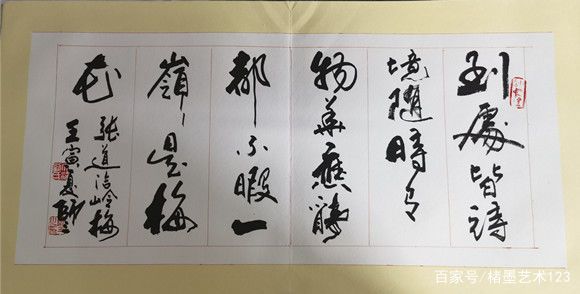 到處皆詩
境隨時有
物華應酬
都不暇一
嶺是梅
花
張道洽岭梅
壬寅夏
百家号/楮墨艺术123